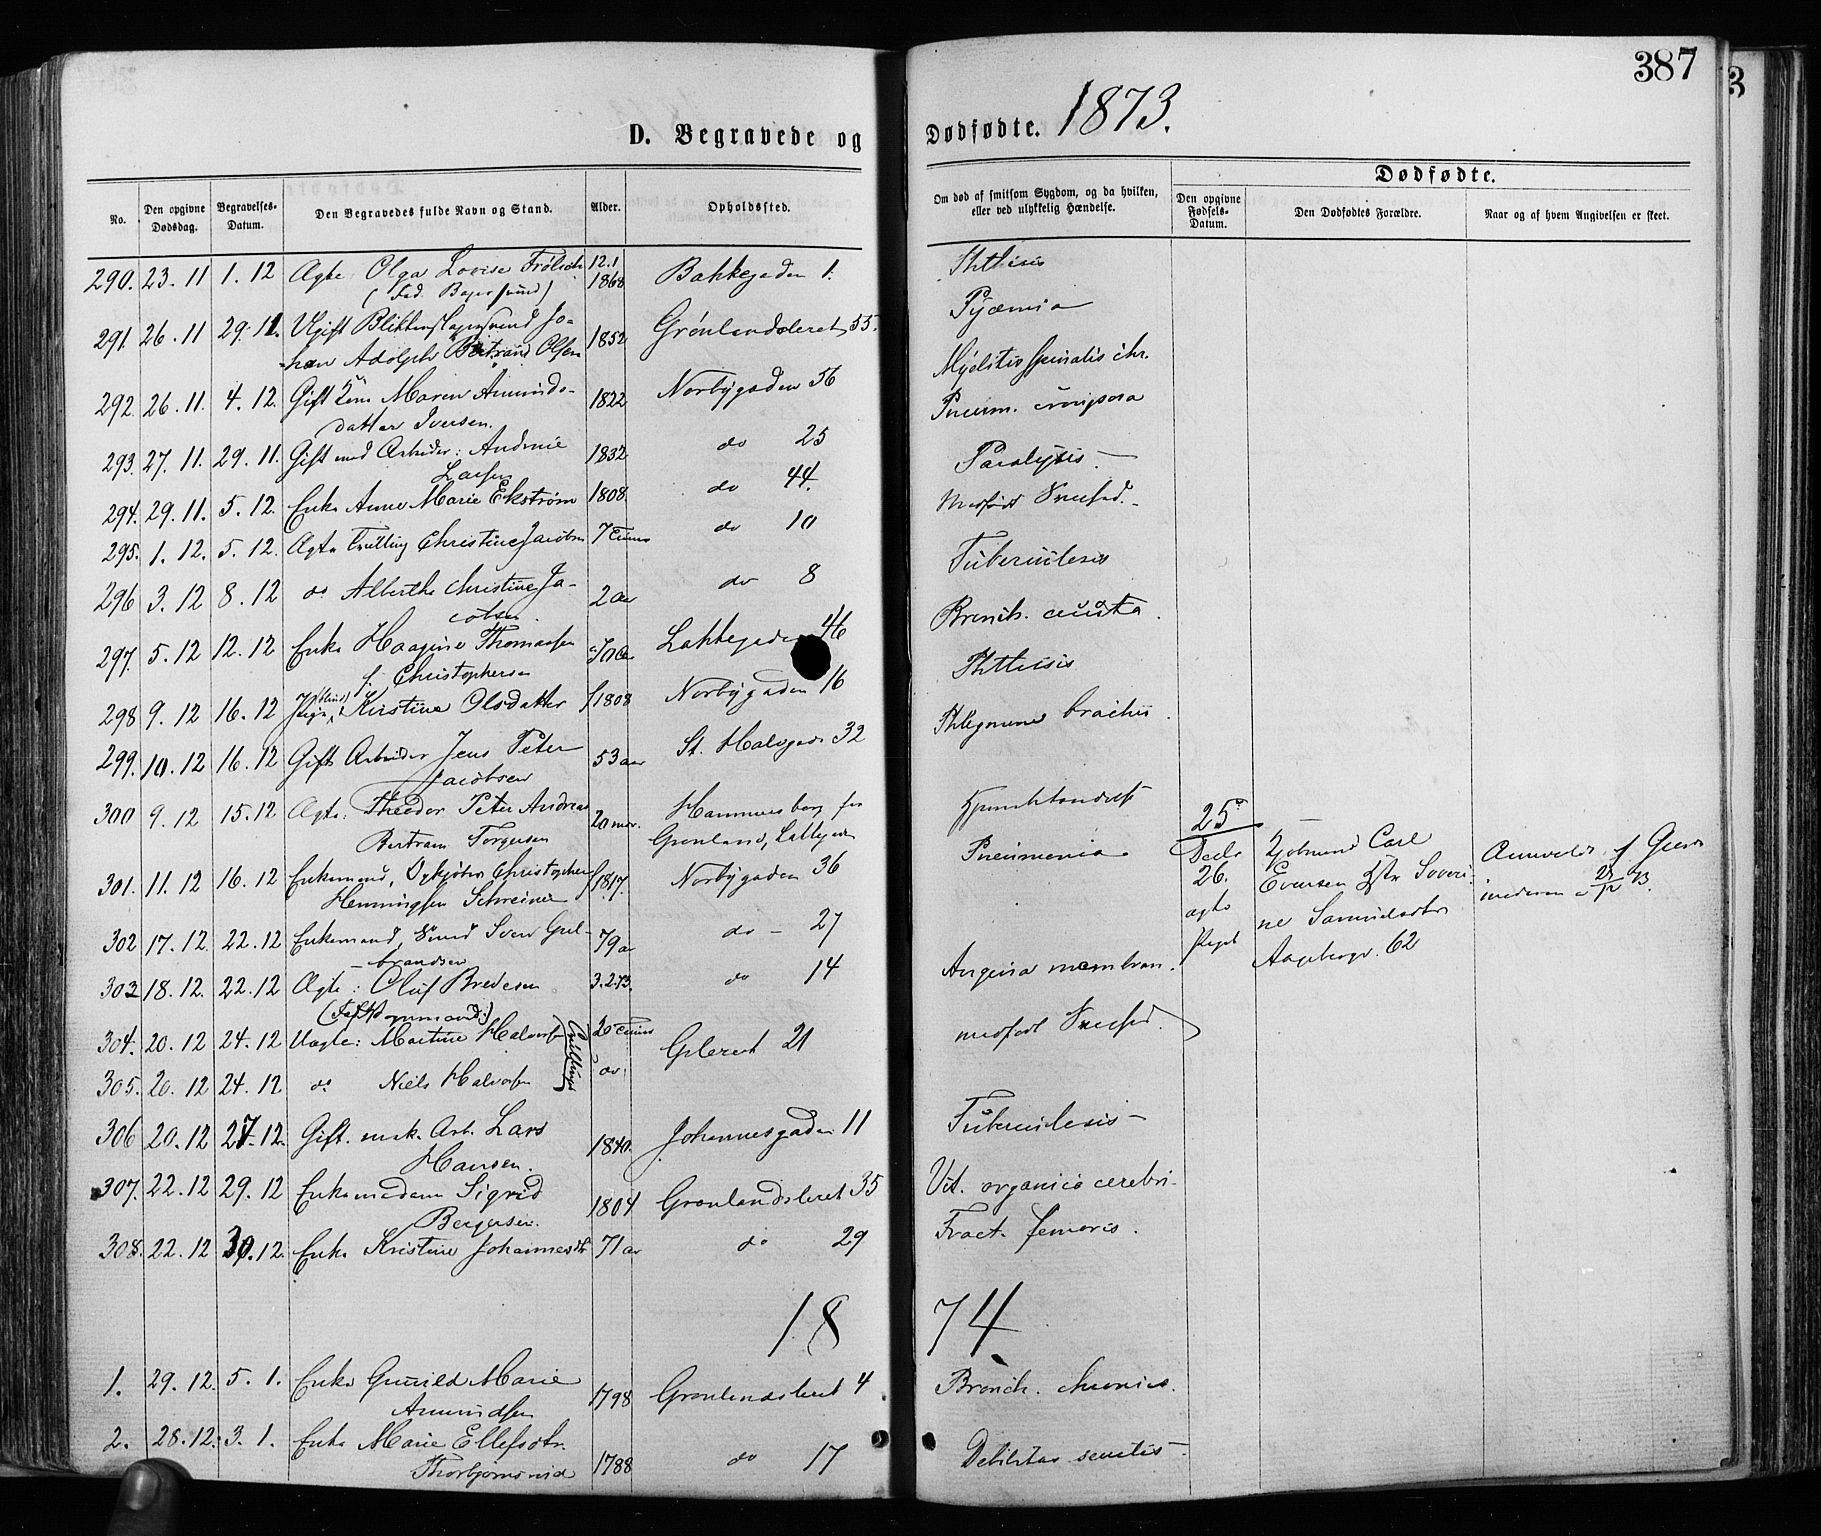 387
D. Begravede og Dødfødte. 1873.
No. Den opgivne Dødsdag. Begravelses-Datum. Den Begravedes fulde Navn og Stand. Alder. Opholdssted.
Om død af smitsom Sygdom, og da hvilken, eller ved ulykkelig Hændelse.
Dødfødte.
Den opgivne Fødsels-Datum. Den Dødfødtes Forældre. Naar og af hvem Angivelsen er skeet.
290. 23.11 1.12 Ægte Olga Lovise 12.1 1868 Bakkegaden 1. Phthisis
291. 26.11 29.11. Ugift Blikkenslagersvend Jo- 1852 Grønlandsleret 55. Pyæmia
han Adolph Bertrand Olsen
292. 26.11. 4.12. Gift Maren Amunds- 1822 Norbygaden 56 Myelitis spinalis chr.
datter Iversen.
293. 27.11. 29.11. Gift med Arbeider: Andrine 1832 do 25 Pneum. crouposa
Larsen
294. 29.11. 5.12. Enke Anne Marie Ekstrøm 1808. do 44. Paralysis
295. 1.12. 5.12. Ægte Tvilling Christine Jacobsen 7 Timer do 10 Medfødt
296 3.12 8.12 do Alberthe Christine Ja- 2 Aar do 8 Tuberculosis
cobsen
297. 5.12 12.12 Enke Haagine Thomassen 70 Lakkegaden 46 Bronch. acuta.
f. Christophersen
298 9.12 16.12 Pige, blind Kristine Olsdatter f 1808 Norbygaden 16 Phthisis
299. 10.12 16.12 Gift Arbeider Jens Peter 53 aar St. Halvgade 32 Phlegmone brachii.
Jacobsen
300 9.12 15.12 Ægte: Theodor Peter Andreas 20 mdr. Hammersborg for
Bertram Torgersen Grønland, Lakkegaden
301. 11.12 16.12 Enkemand, Christopher f. 1817. Norbygaden 36 Pneumonia
Henningsen Schreiner
25
26. ægte Carl
Evensen Severi-
ne Samuelsdtr
62
Anmeldt af
302 17.12. 22.12 Enkemand, Sven Gul- 79 ar do - 27
brandsen
303 18.12. 22.12 Ægte: Oluf Bredesen 3.2.73. do 14 Angina membran.
304. 20.12 24.12 Uægte: Martine Halvorsen 20 Timer Galeret 21 medfødt
305. 20.12 24.12 do Niels Halvorsen do. Tvillinger
306 20.12 27.12. Gift. mask. Arb. Lars 1840. Johannesgaden 11 Tuberculosis -
Hansen.
307. 22.12 29.12 Enkemadam Sigrid 1804 Grønlandsleret 35 Vit. organica cerebri-
Bergersen.
308. 22.12 30.12. Enke Kristine Johannesdt 71 ar do 29 Fract. femoris.
18 74
1. 29.12. 5.1. Enke Gunild Marie 1798 Grønlandsleret 4 Bronch. chronica.
Amundsen
2. 28.12. 3.1. Enke Marie Ellefsdtr 1788 do 17 Debilitas senilis -
Thorbjørnsrud